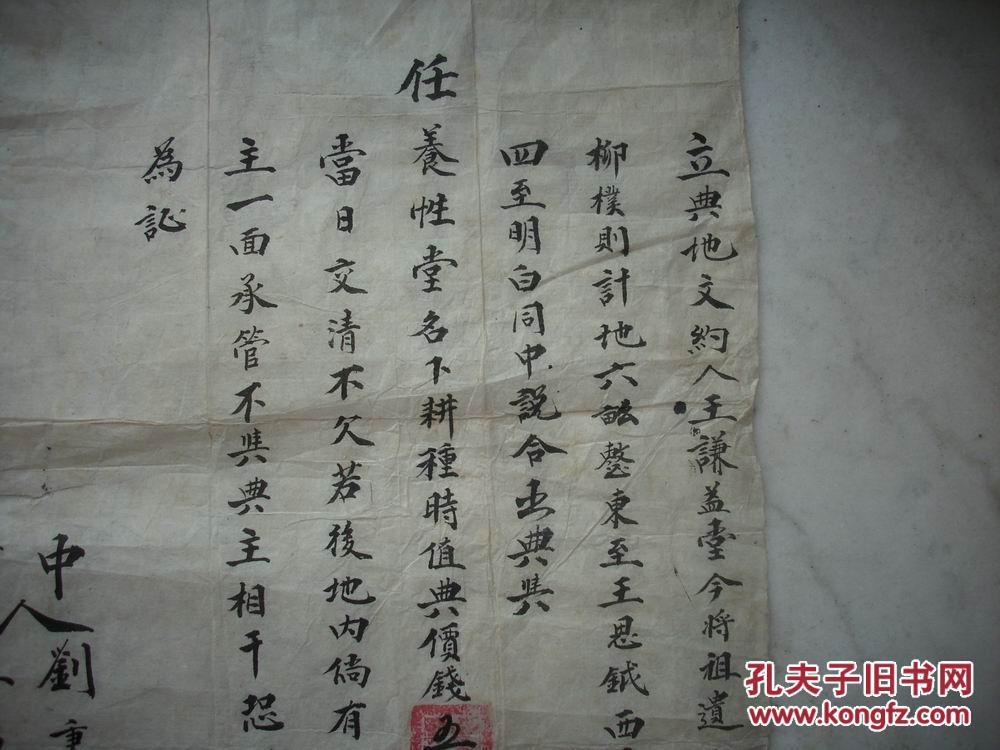 立典地文約人王謙益堂今將祖遺
柳樸則計地六畝整東至王恩鉞西
四至明白同中說合出典與
任養性堂名下耕種時值典價錢五
當日交清不欠若後地內倘有
主一面承管不與典主相干恐
為証
中人劉
人
孔夫子旧书网
www.kongfz.com